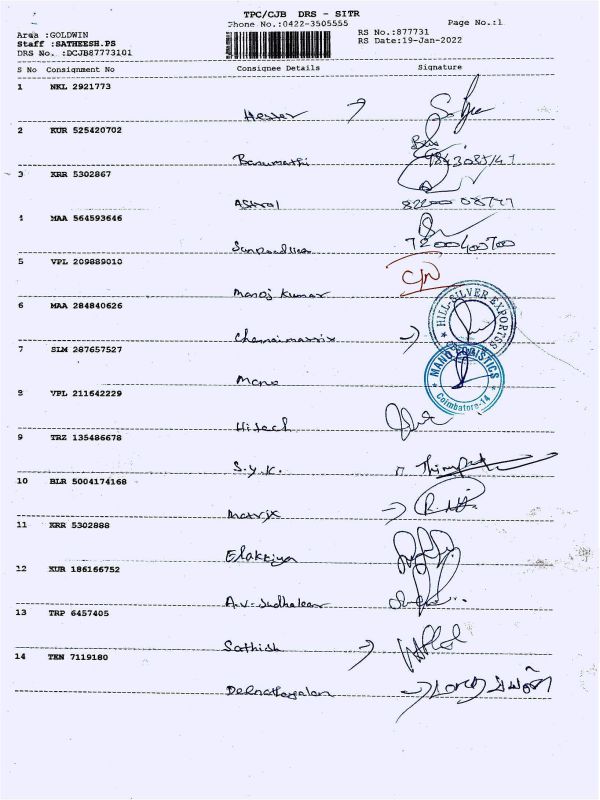 TPC/CJB DRS - SITR
Phone No.:0422-3505555
Page No.:1
Area :GOLDWIN
RS No.:877731
Staff :SATHEESH.PS
RS Date:19-Jan-2022
DRS No. :DCJB87773101
S No Consignment No Consignee Details Signature
1 NKL 2921773
2 KUR 525420702
Banumathi
3 KRR 5302867
4 MAA 564593646
7200400700
5 VPL 209889010
Manoj Kumar
6 MAA 284840626
HILL SILVER EXPORTSS
7 SLM 287657527
MANO LOGISTICS
Coimbatore-14
Mano
8 VPL 211642229
Hitech
9 TRZ 135486678
S.y.K.
10 BLR 5004174168
Matrix
11 KRR 5302888
Elakkiya
12 KUR 186166752
A.V. Sudhakar
13 TRP 6457405
Sathish
14 TEN 7119180